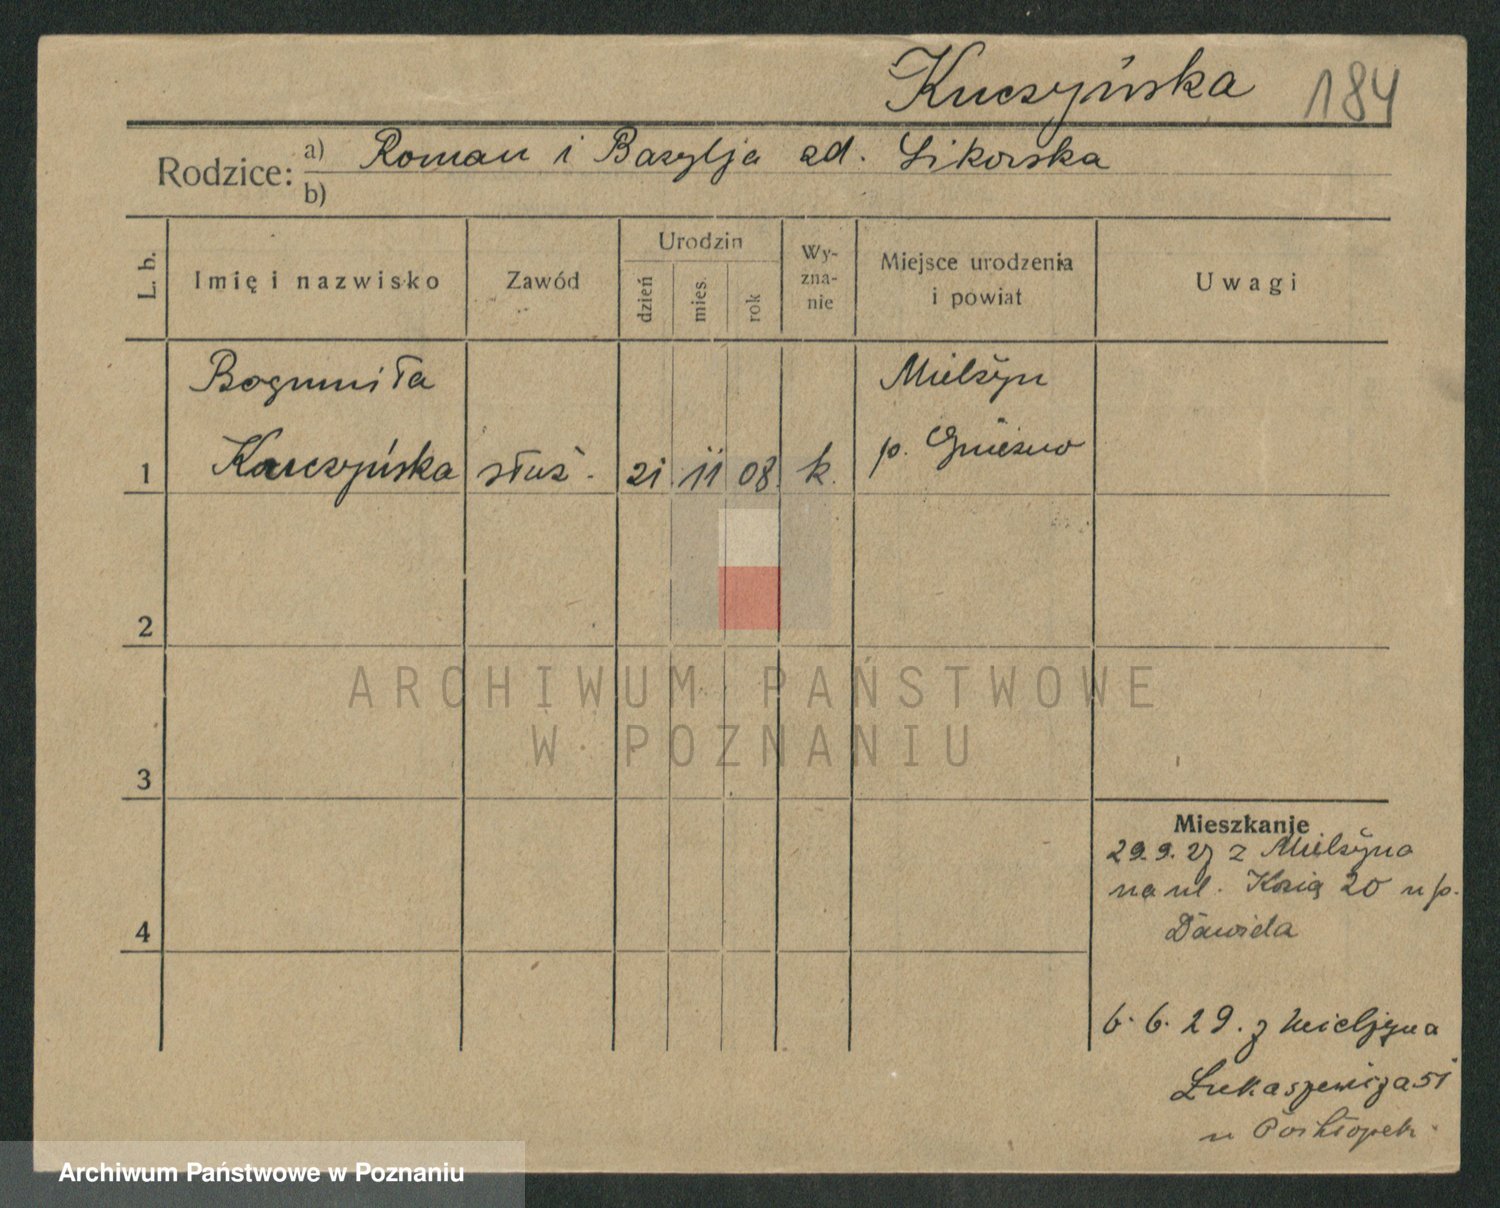 Kuczyńska 184
Rodzice: a) Roman i Bazylja zd. Sikorska
b)
L. b. Imię i nazwisko Zawód Urodzin dzień mies. rok Wy-zna-nie Miejsce urodzenia i powiat Uwagi
Bogumiła Mielżyn
1 Kuczyńska służ. 21 11 08 k. p. Gniezno
2
ARCHIWUM PAŃSTWOWE
W POZNANIU
3
Mieszkanie
29.9.27 z Mielżyna
na ul. Kozią 20 u p.
Dawida
4
6.6.29. z Mielżyna
Łukaszewicza 51
u
Archiwum Państwowe w Poznaniu